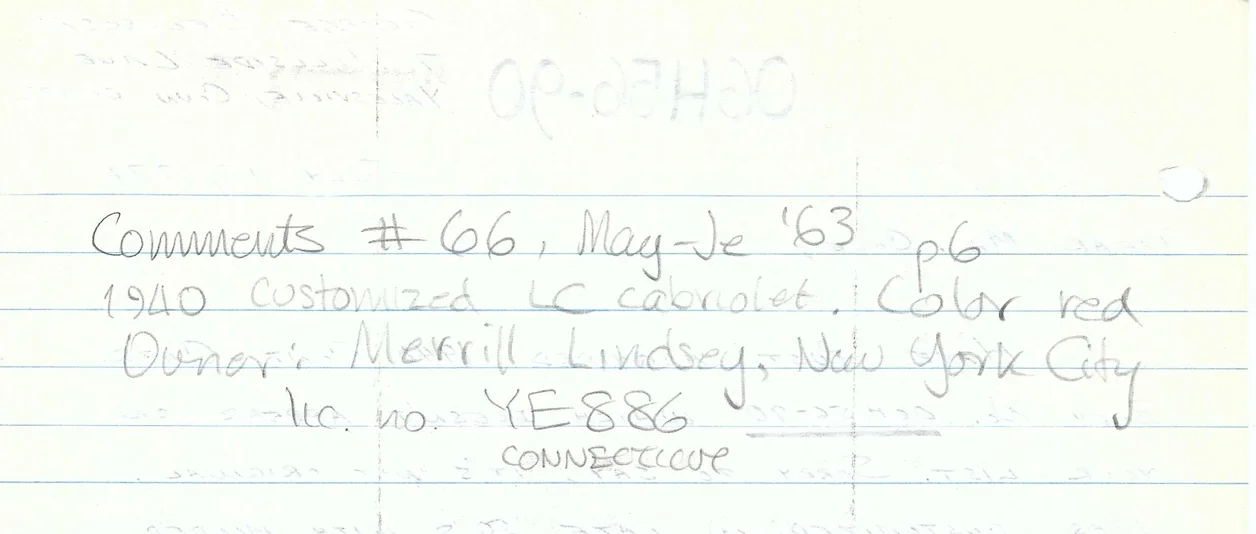 Comments # 66, May-Je '63 p.6
1940 customized LC cabriolet. Color red
Owner: Merrill Lindsey, New York City
lic. no. YE886
CONNECTICUT